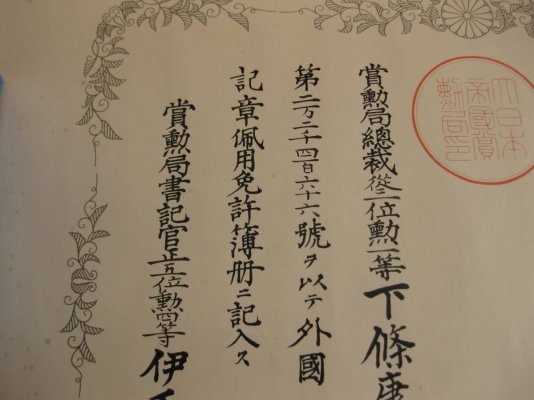 大日本
帝國賞
勲局印
賞勲局總裁從三位勲一等下條康
第二万二千四百六十六號ヲ以テ外國
記章佩用免許簿册ニ記入ス
賞勲局書記官正五位勲四等伊